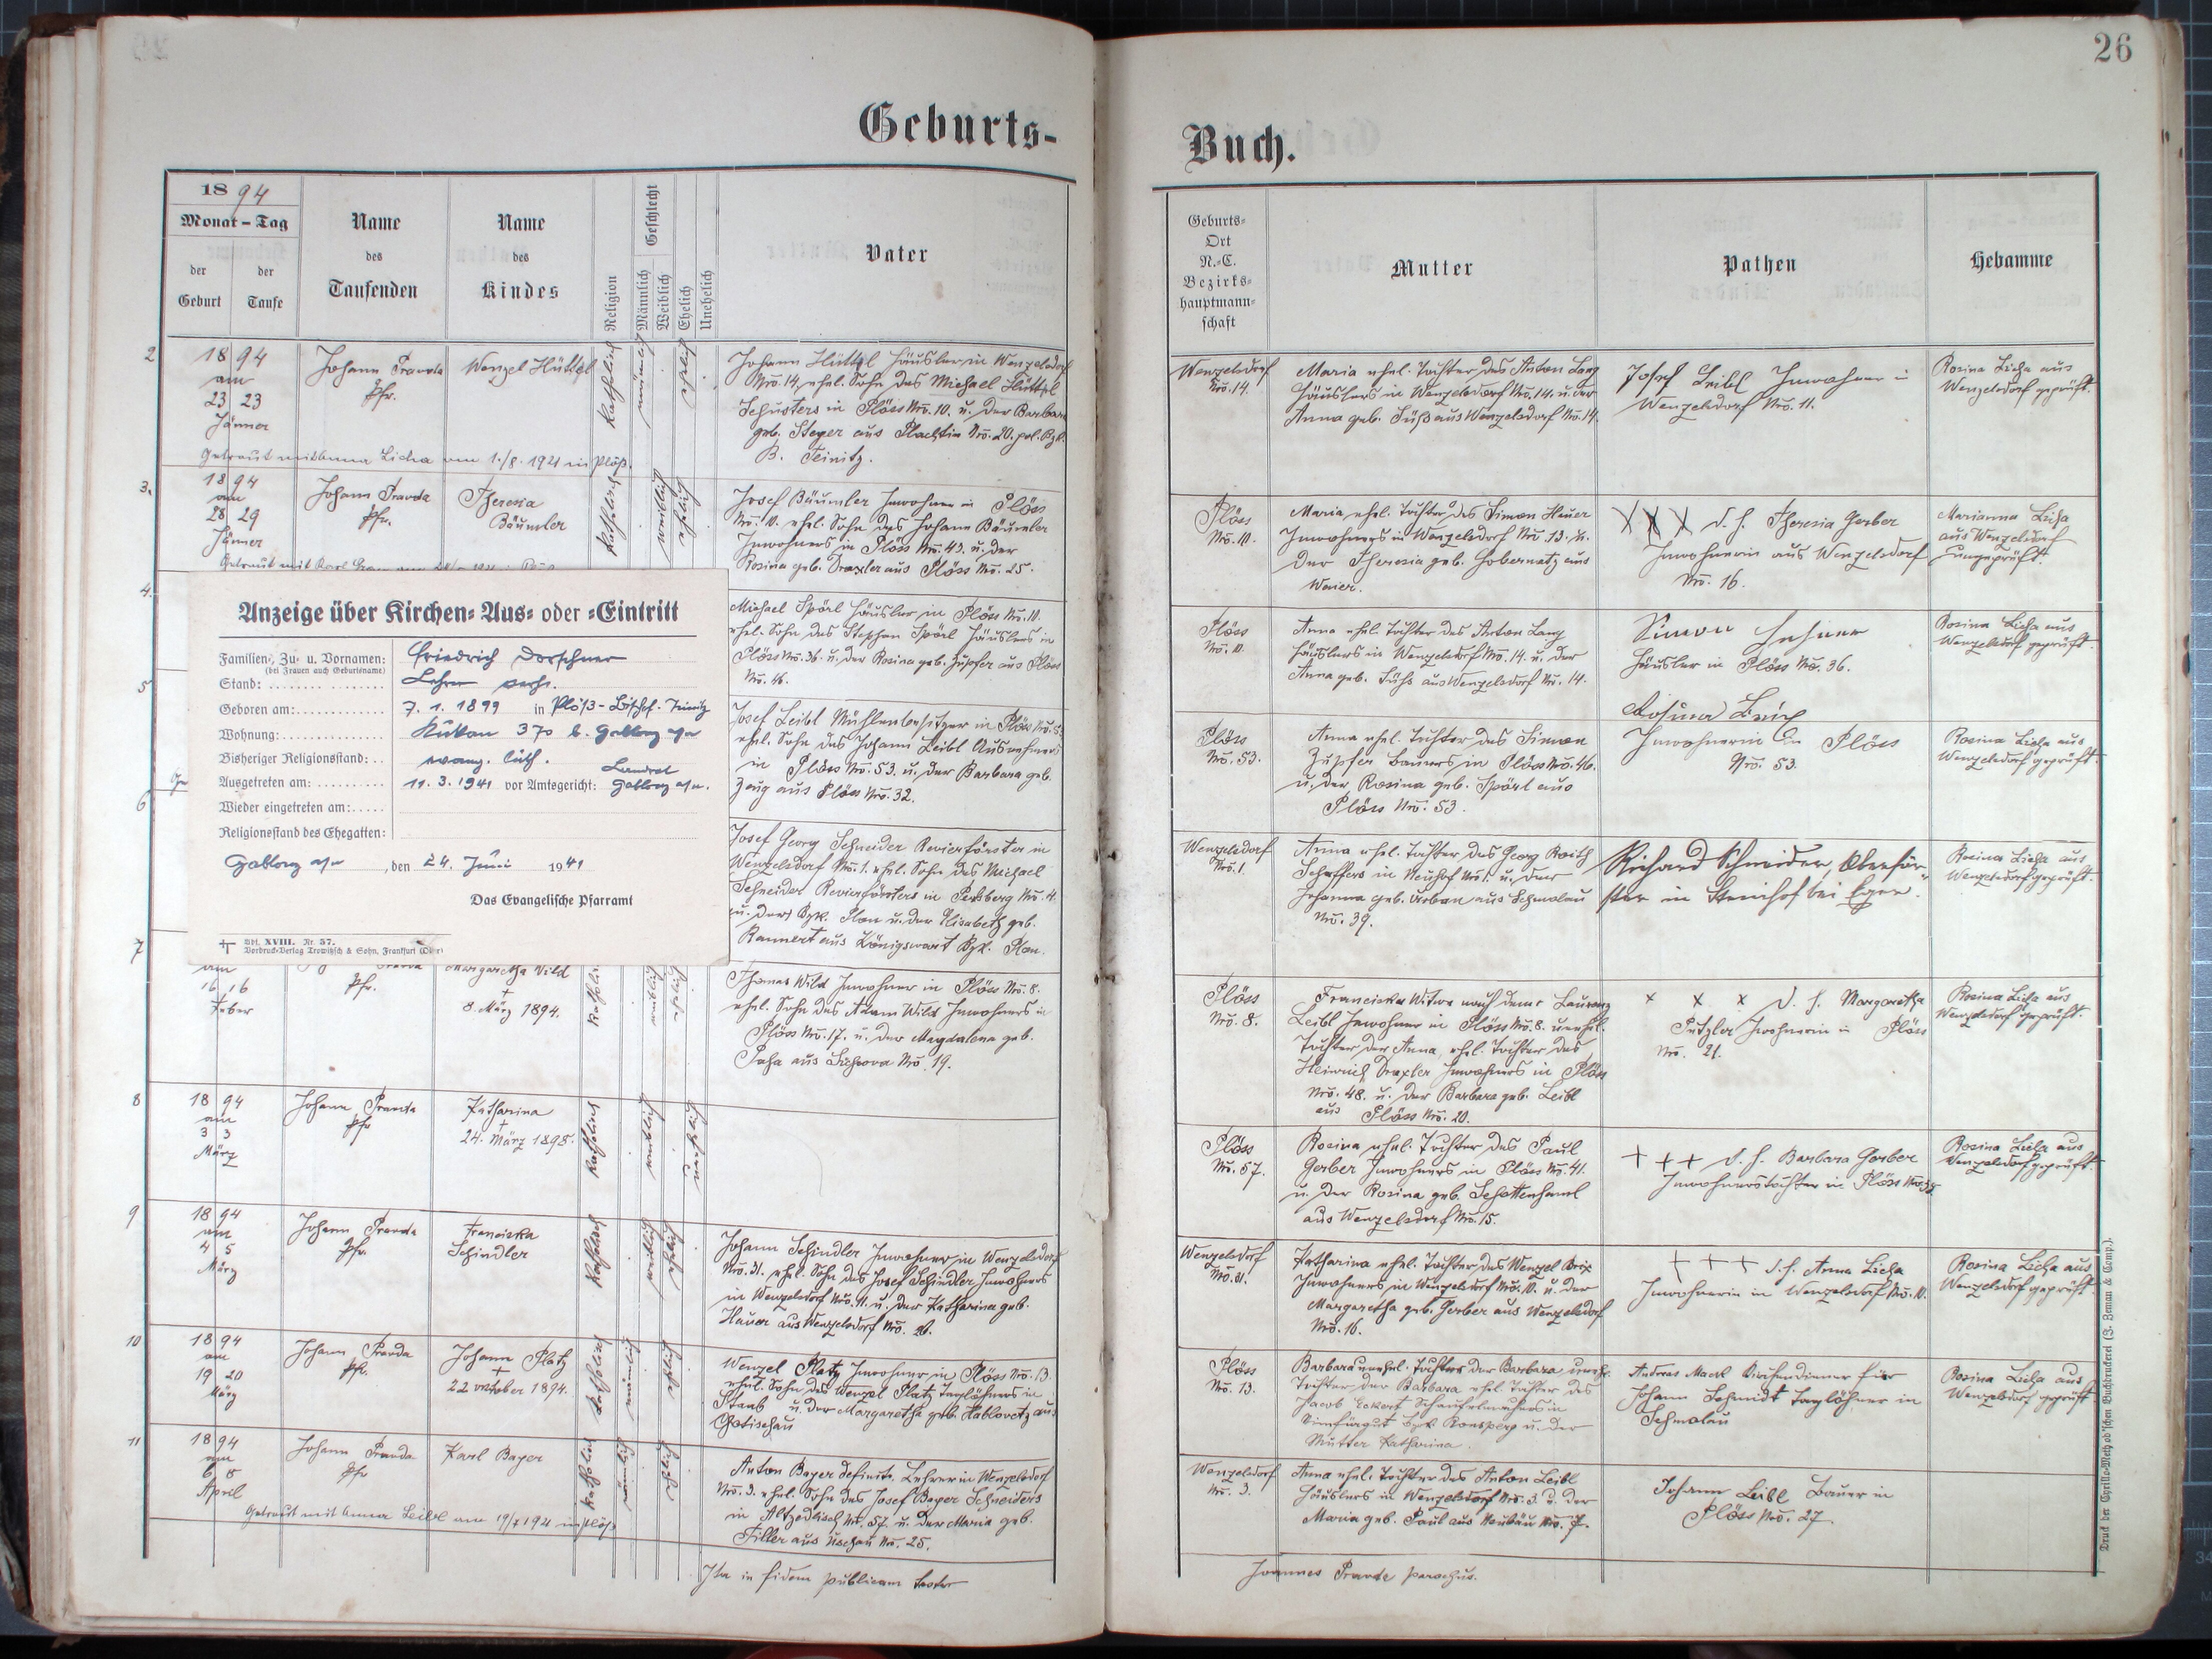 26
Geburts-
Buch.
1894
Monat – Tag
der Geburt
der Taufe
Name
des
Taufenden
Name
des
Kindes
Religion
Geschlecht
Männlich
Weiblich
Ehelich
Unehelich
Vater
Geburts-
Ort
N.-C.
Bezirks-
hauptmann-
schaft
Mutter
Pathen
Hebamme
2
18 94
am
23 23
Jänner
Johann Pravda
Pfr.
Wenzel Hüttl
katholisch
männlich
ehelich
Johann Hüttl Häusler in Wenzelsdorf
Nro. 14, ehel. Sohn des Michael Hüttl
Schusters in Plöss Nro. 10. u. der Barbara
geb. Steyer aus Nro. 20. pol. Bzk.
B. Teinitz.
Getraut mit Anna Licha am 1./8. 1921 in Plöß.
Wenzelsdorf
Nro. 14.
Maria ehel. Tochter des Anton Lang
Häuslers in Wenzelsdorf Nro. 14. u. der
Anna geb. Süß aus Wenzelsdorf Nro. 14.
Josef Leibl Inwohner in
Wenzelsdorf Nro. 11.
Rosina Licha aus
Wenzelsdorf geprüft.
3.
18 94
am
28 29
Jänner
Johann Pravda
Pfr.
Theresia
Bäumler
katholisch
weiblich
ehelich
Josef Bäumler Inwohner in Plöss
Nro. 10. ehel. Sohn des Johann Bäumler
Inwohners in Plöss Nro. 43. u. der
Rosina geb. Draxler aus Plöss Nro. 25.
Getraut mit Karl
Plöss
Nro. 10.
Maria ehel. Tochter des Simon Hauer
Inwohners in Wenzelsdorf Nro. 13. u.
der Theresia geb. Gobernatz aus
Weier.
XXX d. h. Theresia Gerber
Inwohnerin aus Wenzelsdorf
Nro. 16.
Marianna Licha
aus Wenzelsdorf
ungeprüft.
4.
Michael Spörl Häusler in Plöss Nro. 10.
ehel. Sohn des Stephan Spörl Häuslers in
Plöss Nro. 36. u. der Rosina geb. Zupfer aus Plöss
Nro. 46.
Plöss
Nro. 10.
Anna ehel. Tochter des Anton Lang
Häuslers in Wenzelsdorf Nro. 14. u. der
Anna geb. Süß aus Wenzelsdorf Nro. 14.
Simon
Häusler in Plöss Nro. 36.
Rosina Licha aus
Wenzelsdorf geprüft.
5
Josef Leibl Mühlenbesitzer in Plöss Nro. 53.
ehel. Sohn des Johann Leibl Ausnehmers
in Plöss Nro. 53. u. der Barbara geb.
Zeug aus Plöss Nro. 32.
Plöss
Nro. 53.
Anna ehel. Tochter des Simon
Zupfer Bauers in Plöss Nro. 46.
u. der Rosina geb. Spörl aus
Plöss Nro. 53.
Rosina
Inwohnerin in Plöss
Nro. 53.
Rosina Licha aus
Wenzelsdorf geprüft.
Anzeige über Kirchen- Aus- oder -Eintritt
Familien-, Zu- u. Vornamen: Friedrich Dorschner
(bei Frauen auch Geburtsname)
Stand: Lehrer verh.
Geboren am: 7. 1. 1899 in Plöß-Bischof-Teinitz
Wohnung: Kukan 370 b. Gablonz a/n
Bisheriger Religionsstand: evang. luth.
Ausgetreten am: 11. 3. 1941 vor Amtsgericht: Landrat Gablonz a/n.
Wieder eingetreten am:
Religionsstand des Ehegatten:
Gablonz a/n, den 24. Juni 1941
Das Evangelische Pfarramt
Abt. XVIII. Nr. 57.
Vordruck-Verlag Trowitzsch & Sohn, Frankfurt (Oder)
6
Josef Georg Schneider Revierförster in
Wenzelsdorf Nro. 1. ehel. Sohn des Michael
Schneider Revierförsters in Nro. 4.
Bzk. Plan u. der Elisabeth geb.
Rannert aus Königswart Bzk. Plan.
Wenzelsdorf
Nro. 1.
Anna ehel. Tochter des Georg Roith
Schaffers in Neuhof Nro. 1. u. der
Johanna geb. Urban aus Schmolau
Nro. 39.
Richard Schneider, Oberför-
ster in Steinhof bei Eger.
Rosina Licha aus
Wenzelsdorf geprüft.
7
am
16 16
Feber
Pfr.
Margaretha Wild
†
8. März 1894.
weiblich
ehelich
Thomas Wild Inwohner in Plöss Nro. 8.
ehel. Sohn des Adam Wild Inwohners in
Plöss Nro. 17. u. der Magdalena geb.
Nro. 19.
Plöss
Nro. 8.
Franciska Witwe nach dem Laurenz
Leibl Inwohner in Plöss Nro. 8. unehel.
Tochter der Anna, ehel. Tochter des
Heinrich Draxler Inwohners in Plöss
Nro. 48. u. der Barbara geb. Leibl
aus Plöss Nro. 20.
x x x d. h. Margaretha
Putzler Inwohnerin in Plöss
Nro. 21.
Rosina Licha aus
Wenzelsdorf geprüft.
8
18 94
am
3 3
März
Johann Pravda
Pfr
Katharina
†
24. März 1895.
katholisch
weiblich
unehelich
Plöss
Nro. 57.
Rosina ehel. Tochter des Paul
Gerber Inwohners in Plöss Nro. 41.
u. der Rosina geb. Schottenhaml
aus Wenzelsdorf Nro. 15.
+++ d. h. Barbara Gerber
Inwohnerstochter in Plöss
Rosina Licha aus
Wenzelsdorf geprüft.
9
18 94
am
4 5
März
Johann Pravda
Pfr.
Franciska
Schindler
katholisch
weiblich
ehelich
Johann Schindler Inwohner in Wenzelsdorf
Nro. 31. ehel. Sohn des Josef Schindler Inwohners
in Wenzelsdorf Nro. 11. u. der Katharina geb.
Hauer aus Wenzelsdorf Nro.
Wenzelsdorf
Nro. 31.
Katharina ehel. Tochter des Wenzel Brix
Inwohners in Wenzelsdorf Nro. 10. u. der
Margaretha geb. Gerber aus Wenzelsdorf
Nro. 16.
+++ d. h. Anna Licha
Inwohnerin in Wenzelsdorf Nro. 10.
Rosina Licha aus
Wenzelsdorf geprüft.
10
18 94
am
19 20
März
Johann Pravda
Pfr.
Johann Platz
†
22 october 1894.
katholisch
männlich
ehelich
Wenzel Platz Inwohner in Plöss Nro. 13.
ehel. Sohn des Wenzel Platz Taglöhners in
Staab u. der Margaretha geb. Hablowetz aus
Chotischau
Plöss
Nro. 13.
Barbara unehel. Tochter der Barbara unehel.
Tochter der Barbara ehel. Tochter des
Jacob Eckert in
Bzk. Ronsperg u. der
Mutter Katharina.
Andreas Mack Kirchendiener für
Johann Schmidt Taglöhner in
Schmolau
Rosina Licha aus
Wenzelsdorf geprüft
11
18 94
am
6 8
April
Johann Pravda
Pfr
Karl Bayer
katholisch
männlich
ehelich
Anton Bayer definit. Lehrer in Wenzelsdorf
Nro. 3. ehel. Sohn des Josef Bayer Schneiders
in Altzedlisch Nro. 57. u. der Maria geb.
Tiller aus Uschau Nro. 25.
Getraut mit Anna Leibl am 19/7 1921 in Plöß
Wenzelsdorf
Nro. 3.
Anna ehel. Tochter des Anton Leibl
Häuslers in Wenzelsdorf Nro. 3. u. der
Maria geb. Paul aus Neubäu Nro. 7.
Johann Leibl Bauer in
Plöss Nro. 27.
Ita in fidem publicam testor
Joannes Pravda parochus.
Druck der Cyrillo-Method'schen Buchdruckerei (J. Zeman & Comp.).